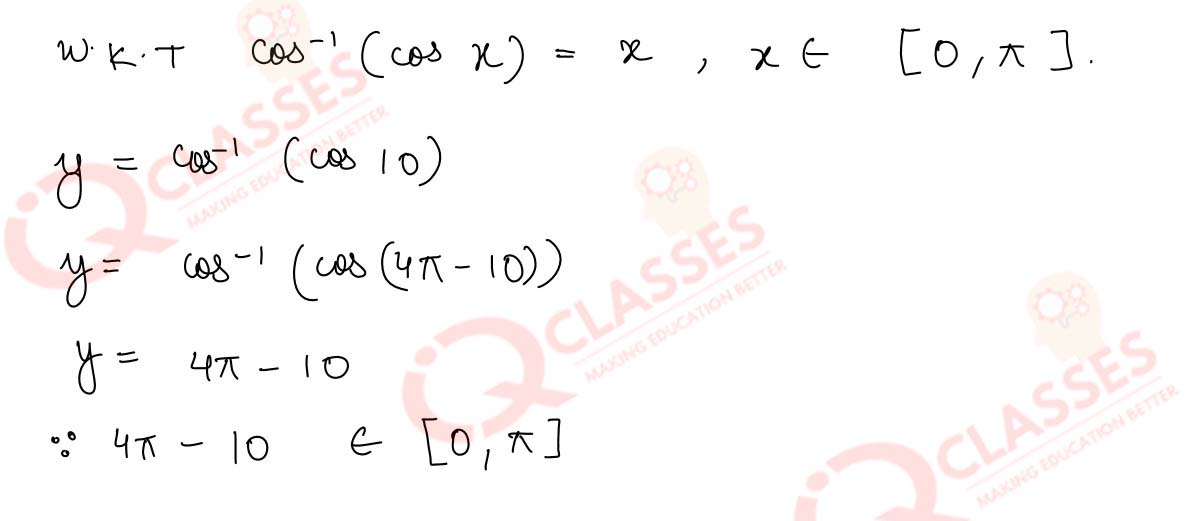 W.K.T cos⁻¹(cos x) = x , x ∈ [0, π].
y = cos⁻¹ (cos 10)
y = cos⁻¹ (cos (4π - 10))
y = 4π - 10
∵ 4π - 10 ∈ [0, π]
iQ CLASSES
MAKING EDUCATION BETTER
iQ CLASSES
MAKING EDUCATION BETTER
iQ CLASSES
MAKING EDUCATION BETTER